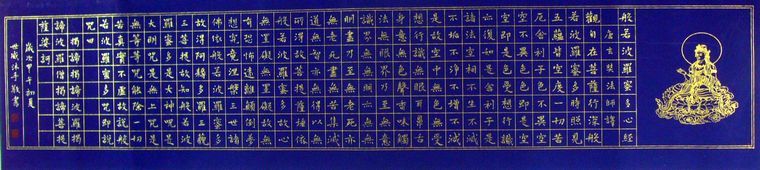 般若波羅蜜多心經
唐玄奘法師譯
觀自在菩薩行深般
若波羅蜜多時照見
五蘊皆空度一切苦
厄舍利子色不異空
空不異色色即是空
空即是色受想行識
亦復如是舍利子是
諸法空相不生不滅
不垢不淨不增不減
是故空中無色無受
想行識無眼耳鼻舌
身意無色聲香味觸
法無眼界乃至無意
識界無無明亦無無
明盡乃至無老死亦
無老死盡無苦集滅
道無智亦無得以無
所得故菩提薩埵依
般若波羅蜜多故心
無罣礙無罣礙故無
有恐怖遠離顛倒夢
想究竟涅槃三世諸
佛依般若波羅蜜多
故得阿耨多羅三藐
三菩提故知般若波
羅蜜多是大神咒是
大明咒是無上咒是
無等等咒能除一切
苦真實不虛故說般
若波羅蜜多咒即說
咒曰
揭諦揭諦波羅揭
諦波羅僧揭諦菩提
薩婆訶
歲次甲午初夏
敬書